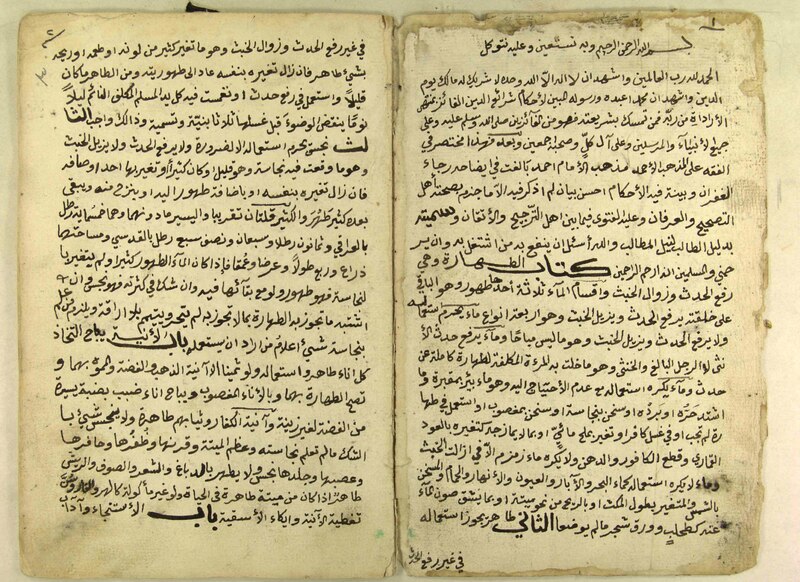 ١
بسم الله الرحمن الرحيم وبه نستعين وعليه نتوكل
الحمد لله رب العالمين واشهد ان لا اله الا الله وحده لا شريك له مالك يوم
الدين واشهد ان محمدا عبده ورسوله المبين لاحكام شرائع الدين الفائز بمنتهى
الارادات من ربه فمن تمسك بشريعته فهو من الفائزين صلى الله وسلم عليه وعلى
جميع الأنبياء والمرسلين وعلى آل كل وصحبه اجمعين وبعد فهذا مختصر في
الفقه على المذهب الأحمد مذهب الأمام احمد بالغت في ايضاحه رجاء
الغفران وبينة فيه الأحكام احسن بيان لم اذكر فيه الا ما جزم بصحته أهل
التصحيح والعرفان وعليه الفتوى فيما بين اهل الترجيح والأتقان وسميته
بدليل الطالب لنيل المطالب والله اسئل ان ينفع به من اشتغل به وان ير
حمني والمسلمين انه ارحم الراحمين كتاب الطهارة وهي
رفع الحدث وزوال الخبث واقسام الماء ثلاثة أحدها طهور وهو الباقي
على خلقته يرفع الحدث ويزيل الخبث وهو اربعة انواع ماء يحرم استعماله
ولا يرفع الحدث ويزيل الخبث وهو ما ليس مباحا وماء يرفع حدث الأ
نثى لا الرجل البالغ والخنثى وهو ما خلت به المرءة المكلفة لطهارة كاملة عن
حدث وماء يكره استعماله مع عدم الأحتياج اليه وهو ماء بئر بمقبرة وما
اشتد حره او برده او سخن بنجاسة او سخن بمغصوب او استعمل في طها
رة لم تجب او في غسل كافر او تغير بملح مائي او بما لا يمازجه كتغيره بالعود
القماري وقطع الكافور والدهن ولا يكره ماء زمزم الا في ازالت الخبث
وماء لا يكره استعماله كماء البحر والأبار والعيون والأنهار والحمام والمسخن
بالشمس والمتغير بطول المكث او بالريح من نحو ميتة او بما يشق صون الماء
عنه كطحلب وورق شجر مالم يوضعا الثاني طاهر يجوز استعماله
في غير رفع الحدث
٢
في غير رفع الحدث وزوال الخبث وهو ما تغير كثير من لونه او طعمه او ريحه
بشيئ طاهر فان زال تغيره بنفسه عاد الى طهوريته ومن الطاهر ما كان
قليلا واستعمل في رفع حدث او نغمست فيه كل يد المسلم المكلف النائم ليلا
نوما ينقض الوضوء قبل غسلها ثلاثا بنية وتسمية وذالك واجب الثا
لث نجس يحرم استعماله الا لضرورة ولا يرفع الحدث ولا يزيل الخبث
وهو ما وقعت فيه نجاسة وهو قليل او كان كثيرا وتغير بها احد اوصافه
فان زال تغيره بنفسه او باضافة طهور اليه او بنزح منه ويبقى
بعده كثير طهر والكثير قلتان تقريبا واليسير ما دونهما وهما خمسمائة رطل
بالعراقي وثمانون رطلا وسبعان ونصف سبع رطل بالقدسي ومساحتهما
ذراع وربع طولا وعرضا وعمقا فاذا كان الماء الطهور كثيرا ولم يتغير با
لنجاسة فهو طهور ولو مع بقائها فيه وان شك في كثرته فهو نجس وان
اشتبه ما تجوز به الطهارة بما لا تجوز به لم يتحر ويتيمم بلا اراقة ويلزم من علم
بنجاسة شيئ اعلام من اراد ان يستعمله باب الآنية يباح اتخاذ
كل اناء طاهر واستعماله ولو ثمينا الا آنية الذهب والفضة والمموه بهما و
تصح الطهارة بهما وبالأناء المغصوب ويباح اناء ضبب بضبة يسيرة
من الفضة لغير زينة وآنية الكفار وثيابهم طاهرة ولا ينجس شيئ با
الشك مالم تعلم نجاسته وعظم الميتة وقرنها وظفرها وحافرها
وعصبها وجلدها نجس ولا يطهر بالدباغ والشعر والصوف والريش
طاهر اذا كان من ميتة طاهرة في الحياة ولو غير مأكولة كالهر والفار ويسن
تغطية الآنية وايكاء الأسقية باب الأستنجاء وآداب